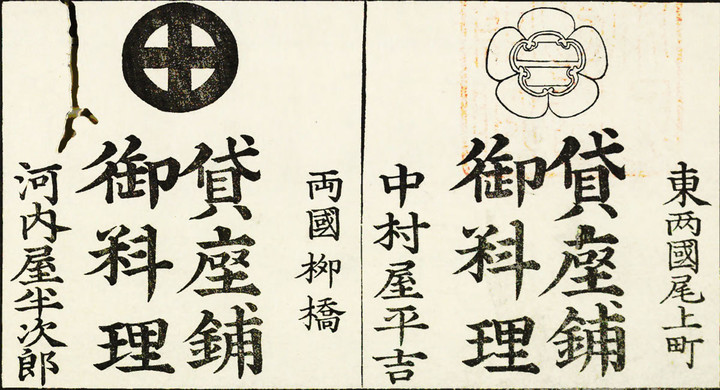 東両國尾上町
貸座鋪
御料理
中村屋平吉
両國柳橋
貸座鋪
御料理
河内屋半次郎